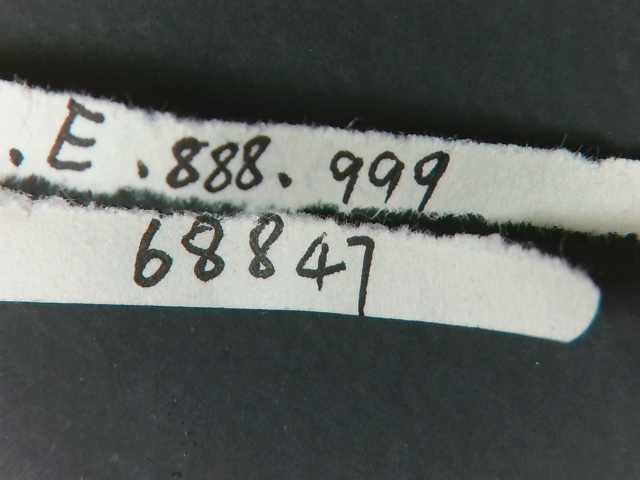 .E.888.999
68847